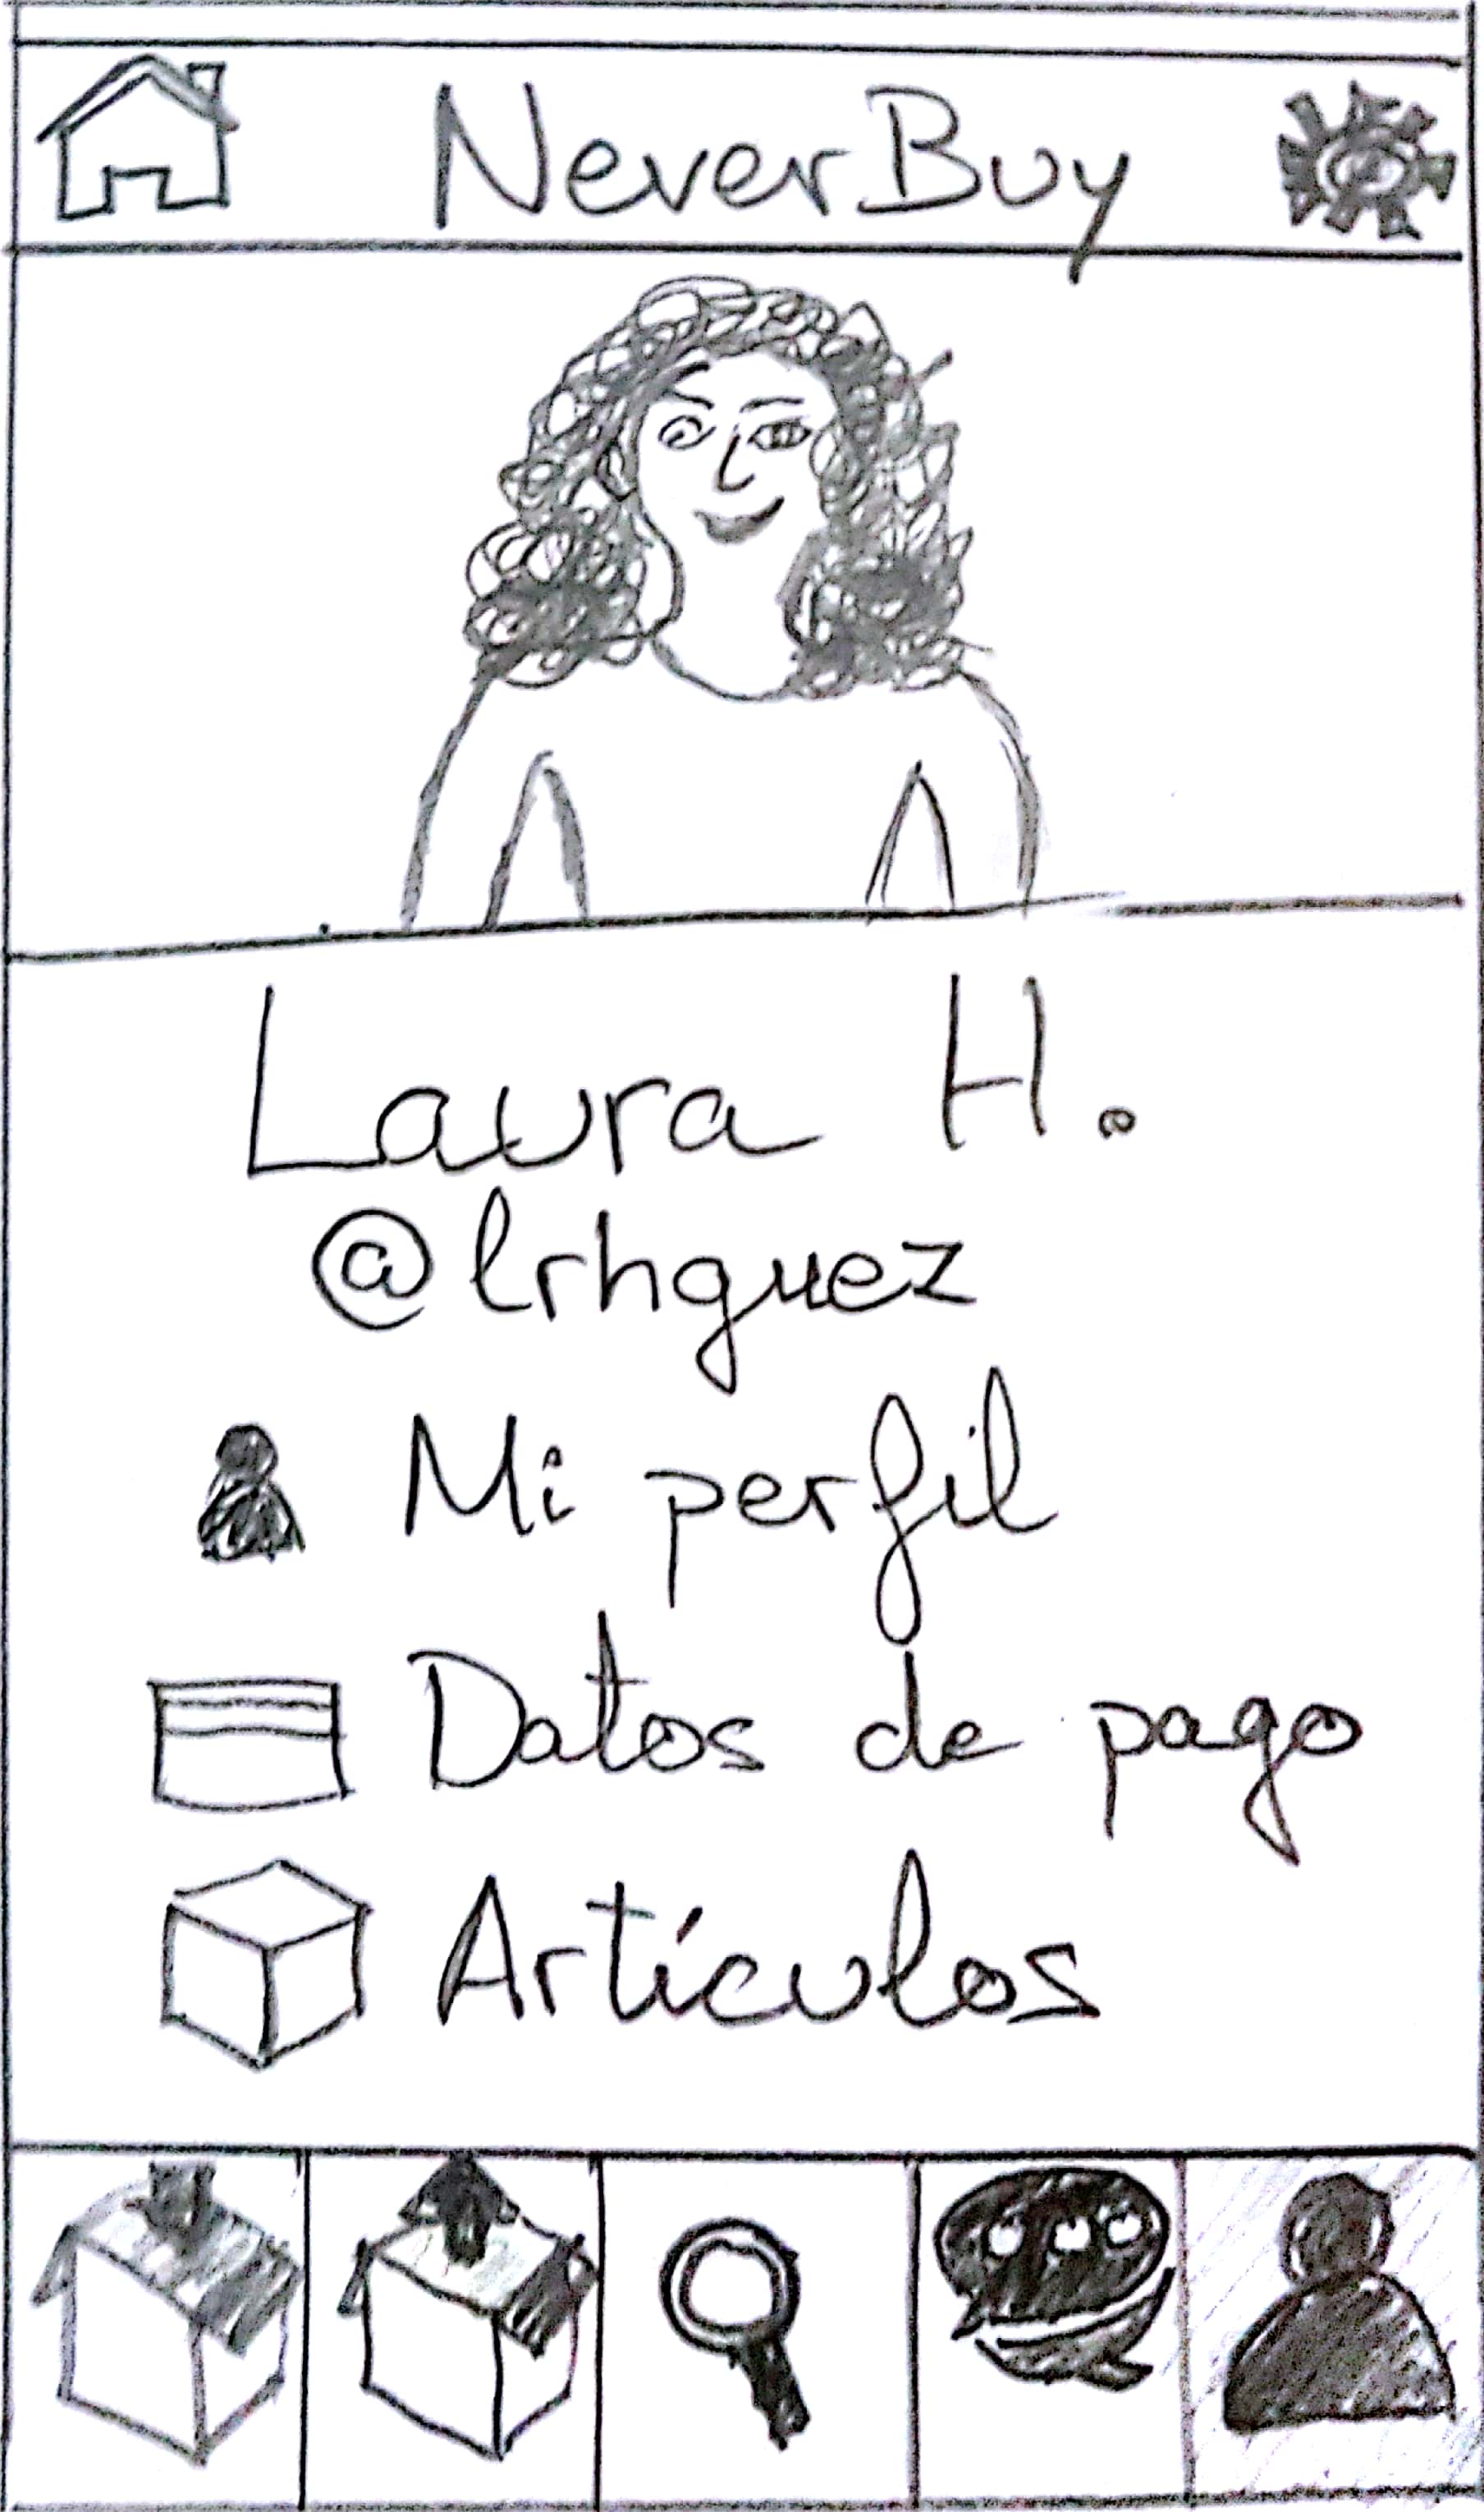 NeverBuy
Laura H.
@lrhguez
Mi perfil
Datos de pago
Artículos